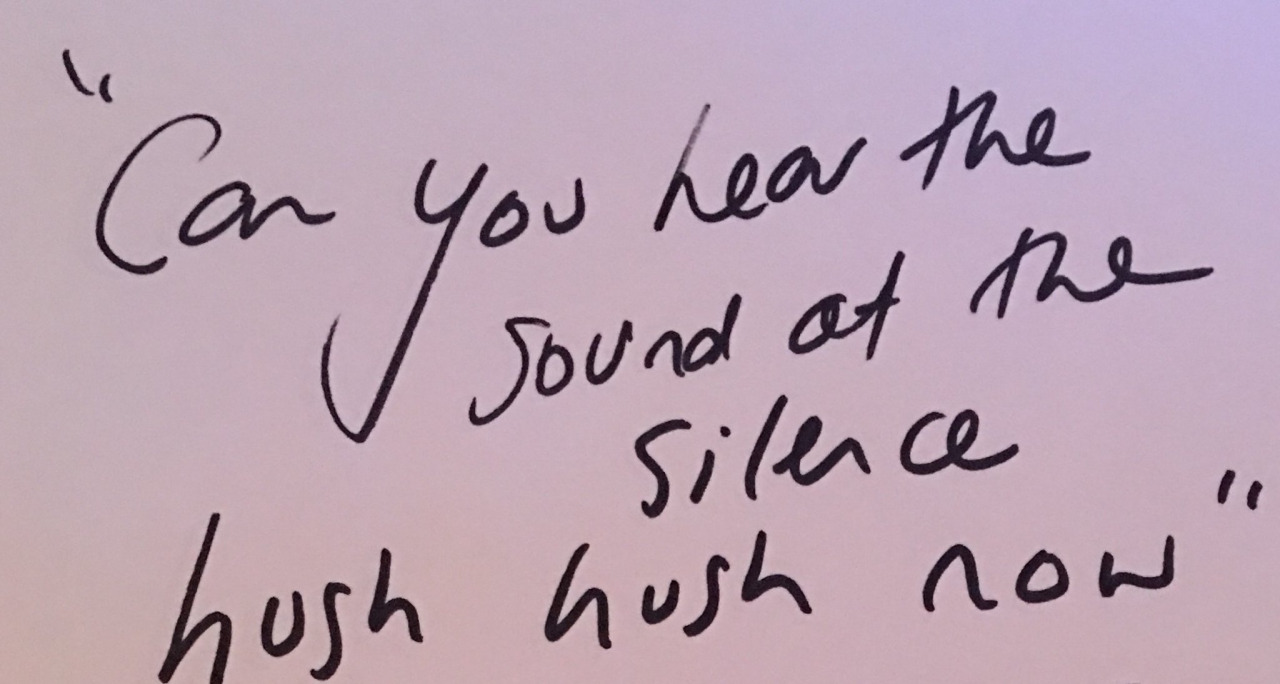 "Can you hear the
sound at the
silence
hush hush now"